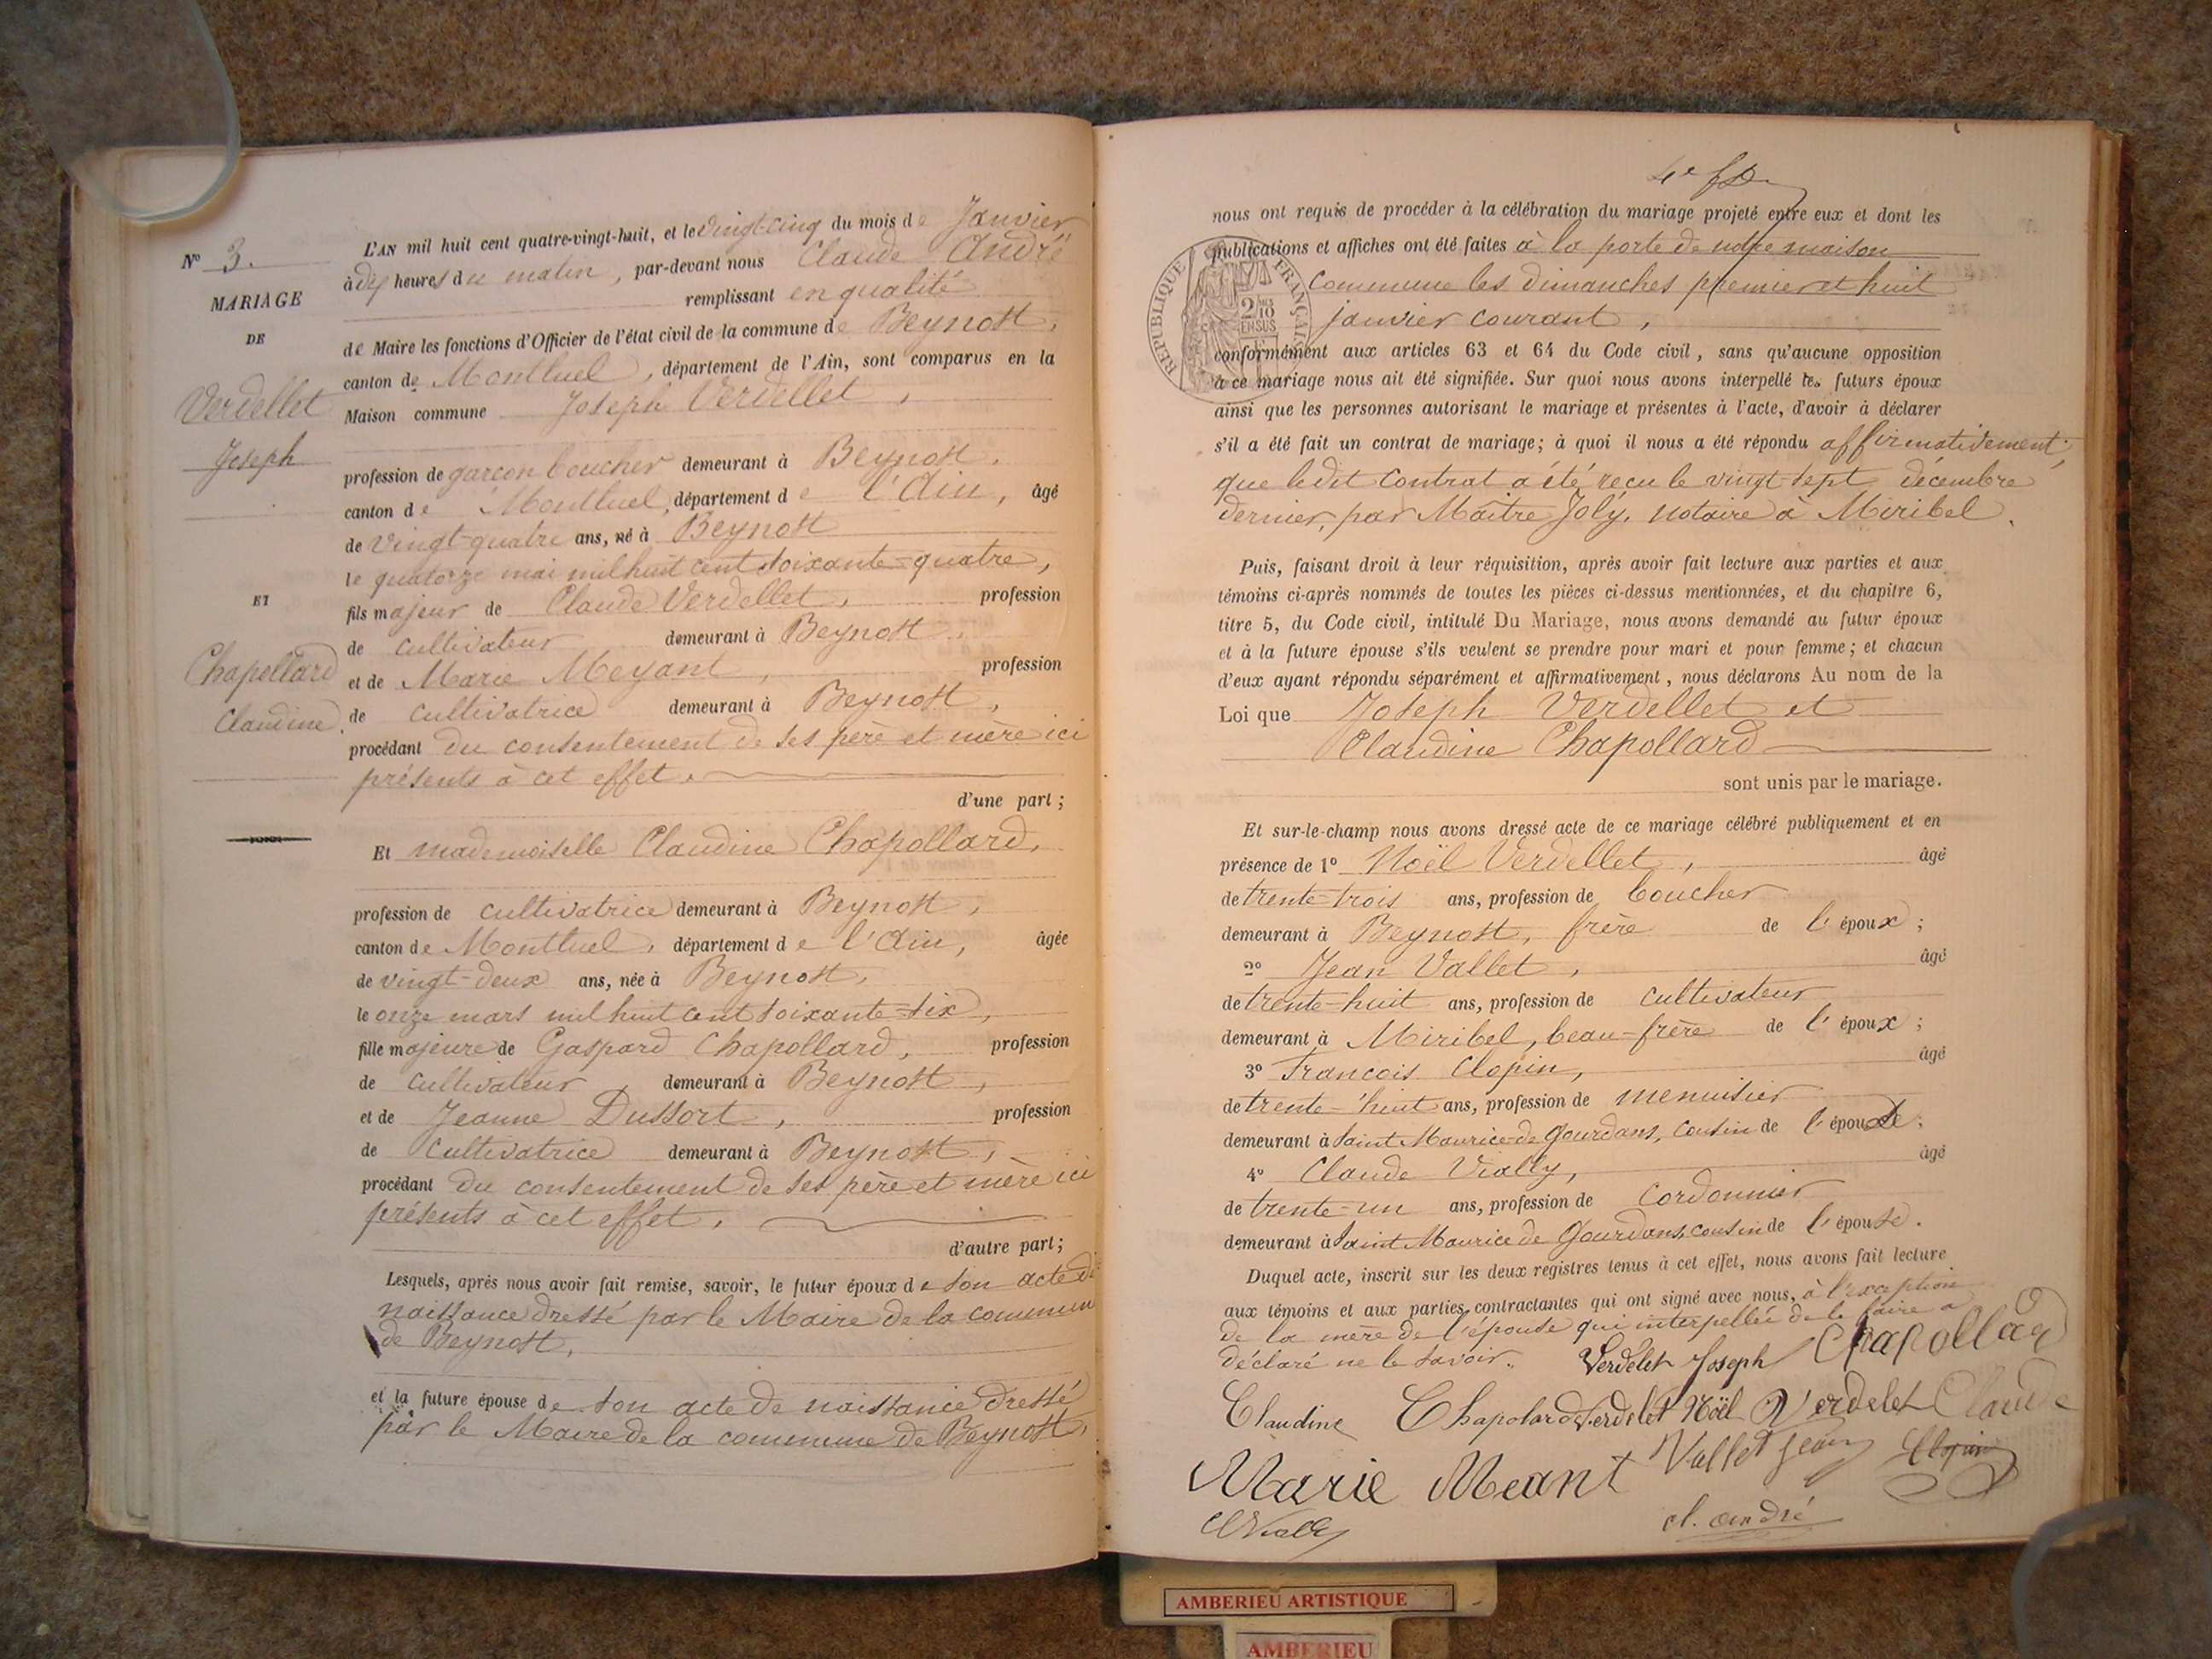 N° 3.
MARIAGE
DE
Verdellet
Joseph
ET
Chapollard
Claudine.
L'AN mil huit cent quatre-vingt-huit, et le vingt-cinq du mois de Janvier
à dix heures du matin, par-devant nous Claude André
remplissant en qualité
de Maire les fonctions d'Officier de l'état civil de la commune de Beynost,
canton de Montluel, département de l'Ain, sont comparus en la
Maison commune Joseph Verdellet,
profession de garçon boucher demeurant à Beynost,
canton de Montluel, département de l'Ain, âgé
de vingt-quatre ans, né à Beynost
le quatorze mai mil huit cent soixante-quatre,
fils majeur de Claude Verdellet, profession
de cultivateur demeurant à Beynost,
et de Marie Meyant, profession
de cultivatrice demeurant à Beynost,
procédant du consentement de ses père et mère ici
présents à cet effet.
d'une part;
Et mademoiselle Claudine Chapollard,
profession de cultivatrice demeurant à Beynost,
canton de Montluel, département de l'Ain, âgée
de vingt-deux ans, née à Beynost,
le onze mars mil huit cent soixante-six,
fille majeure de Gaspard Chapollard, profession
de cultivateur, demeurant à Beynost,
et de Jeanne Dussort, profession
de cultivatrice demeurant à Beynost,
procédant du consentement de ses père et mère ici
présents à cet effet.
d'autre part;
Lesquels, après nous avoir fait remise, savoir, le futur époux de son acte de
naissance dressé par le Maire de la commune
de Beynost,
et la future épouse de son acte de naissance dressé
par le Maire de la commune de Beynost,
nous ont requis de procéder à la célébration du mariage projeté entre eux et dont les
publications et affiches ont été faites à la porte de notre maison
commune les dimanches premier et huit
janvier courant,
REPUBLIQUE FRANÇAISE
2/10
EN SUS
conformément aux articles 63 et 64 du Code civil, sans qu'aucune opposition
à ce mariage nous ait été signifiée. Sur quoi nous avons interpellé les futurs époux
ainsi que les personnes autorisant le mariage et présentes à l'acte, d'avoir à déclarer
s'il a été fait un contrat de mariage; à quoi il nous a été répondu affirmativement,
que ledit contrat a été reçu le vingt-sept décembre
dernier, par Maître Joly, notaire à Miribel.
Puis, faisant droit à leur réquisition, après avoir fait lecture aux parties et aux
témoins ci-après nommés de toutes les pièces ci-dessus mentionnées, et du chapitre 6,
titre 5, du Code civil, intitulé Du Mariage, nous avons demandé au futur époux
et à la future épouse s'ils veulent se prendre pour mari et pour femme; et chacun
d'eux ayant répondu séparément et affirmativement, nous déclarons Au nom de la
Loi que Joseph Verdellet et
Claudine Chapollard
sont unis par le mariage.
Et sur-le-champ nous avons dressé acte de ce mariage célébré publiquement et en
présence de 1° Noël Verdellet, âgé
de trente-trois ans, profession de boucher
demeurant à Beynost, frère de l'époux;
2° Jean Vallet, âgé
de trente-huit ans, profession de cultivateur
demeurant à Miribel, beau-frère de l'époux;
3° François Clopin, âgé
de trente-huit ans, profession de menuisier
demeurant à Saint Maurice de Gourdans, cousin de l'épouse;
4° Claude Vially, âgé
de trente-un ans, profession de cordonnier
demeurant à Saint Maurice de Gourdans, cousin de l'épouse.
Duquel acte, inscrit sur les deux registres tenus à cet effet, nous avons fait lecture
aux témoins et aux parties contractantes qui ont signé avec nous, à l'exception
de la mère de l'épouse qui interpellée de le faire a
déclaré ne le savoir. Verdelet Joseph Chapollard
Claudine Chapolard Verdelet Noël Verdelet Claude
Marie Meant Vallet Jean Clopin
cl. andré
AMBERIEU ARTISTIQUE
AMBERIEU